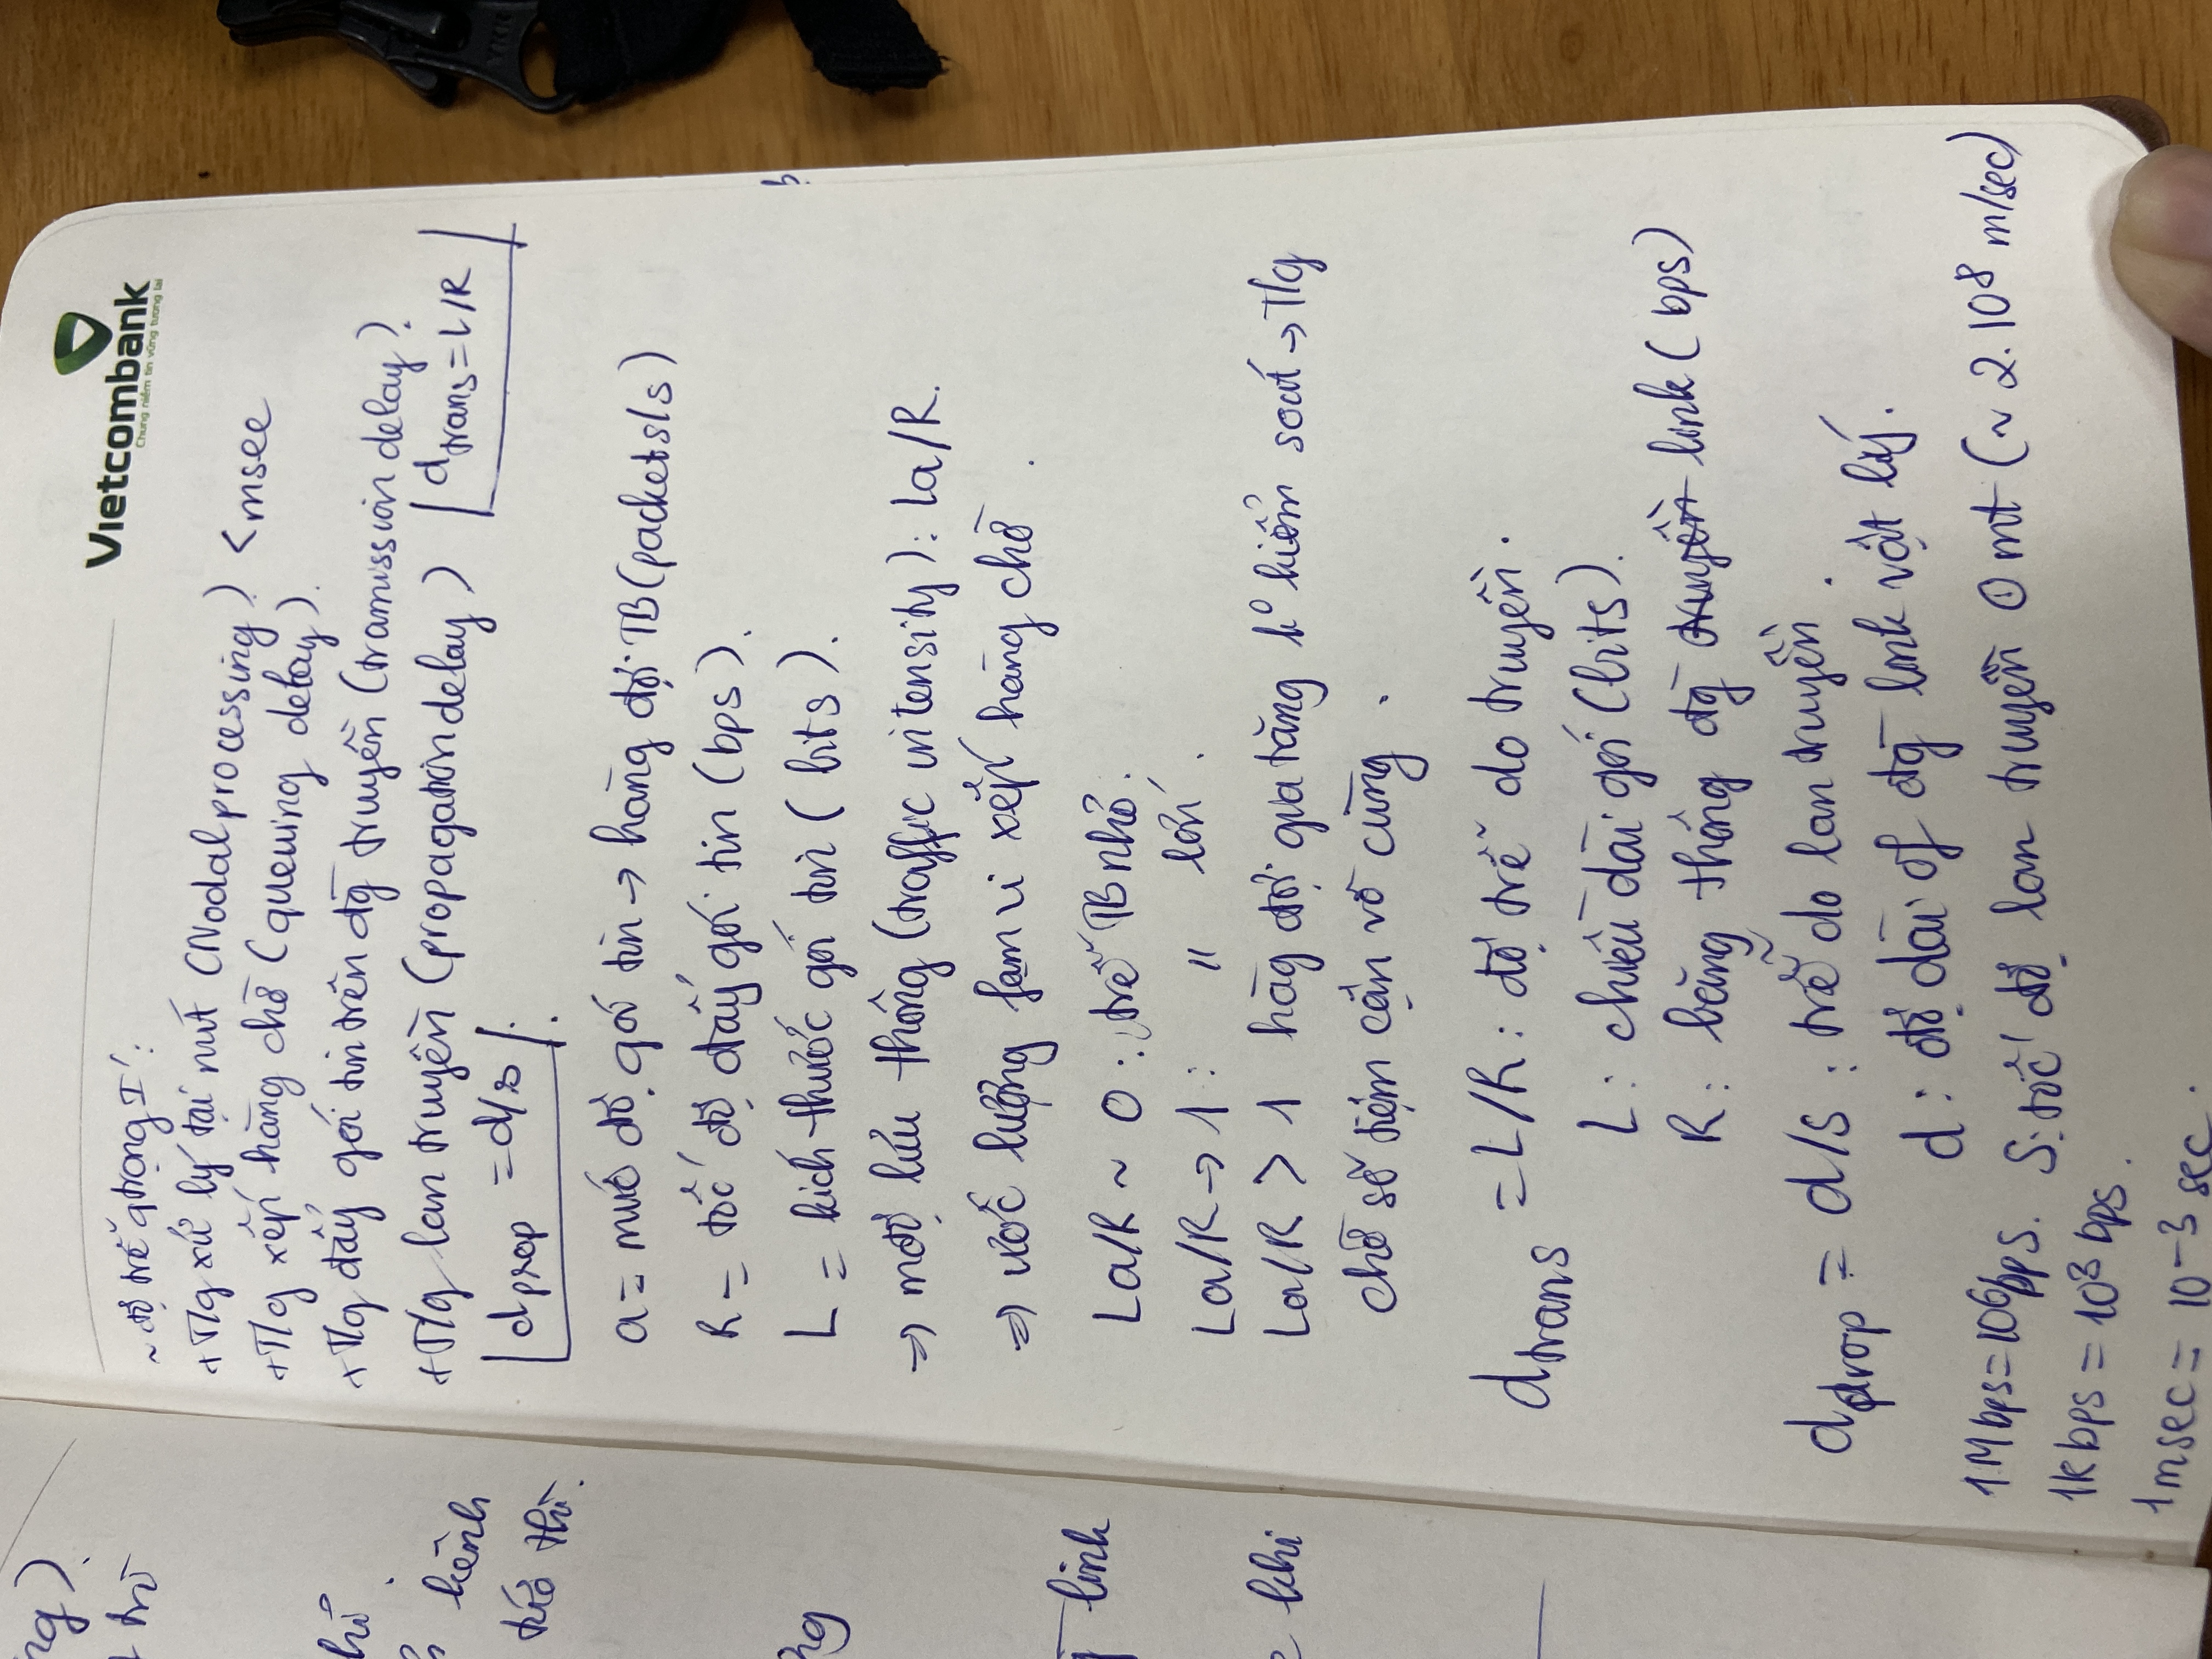 ng).
trò
hỉ.
kênh
thì.
ng
link
khi
Vietcombank
Chung niềm tin vững tương lai
~ độ trễ qtrọng I':
+ T/g xử lý tại nút (Nodal processing) < msec
+ T/g xếp hàng chờ (queuing delay).
+ T/g đẩy gói tin trên đg truyền (tramission delay).
+ T/g lan truyền (propagation delay)
d trans = L/R
d prop = d/s.
a = mức độ gói tin → hàng đợi TB (packets/s)
R = tốc độ đẩy gói tin (bps).
L = kích thước gói tin (bits).
⇒ mđộ lưu thông (traffic intensity): La/R.
⇒ ước lượng fạm vi xếp hàng chờ.
La/R ~ 0: trễ TB nhỏ.
La/R → 1: " lớn.
La/R > 1 hàg đợi gia tăng k⁰ kiểm soát → T/g
chờ sẽ tiệm cận vô cùng.
d trans = L/R: độ trễ do truyền.
L: chiều dài gói (bits).
R: băng thông đg truyền link (bps)
d prop = d/s: trễ do lan truyền.
d: độ dài of đg link vật lý.
S: tốc độ lan truyền mt (~ 2.10⁸ m/sec)
1Mbps = 10⁶ bps.
1kbps = 10³ bps.
1msec = 10⁻³ sec.